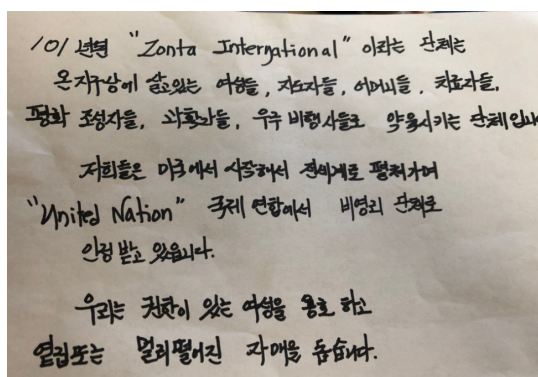 101 년된 "Zonta International" 이라는 단체는
온지구상에 살고있는 여성들, 지도자들, 어머니들, 치료자들,
평화 조성자들, 과학자들, 우주 비행사들로 약육시키는 단체입니
저희들은 미국에서 시작해서 전세계로 펼쳐가며
"United Nation" 국제 연합에서 비영리 단체로
인정 받고 있읍니다.
우리는 권한이 있는 여성을 옹호 하고
옆집또는 멀리떨어진 자매을 돕습니다.